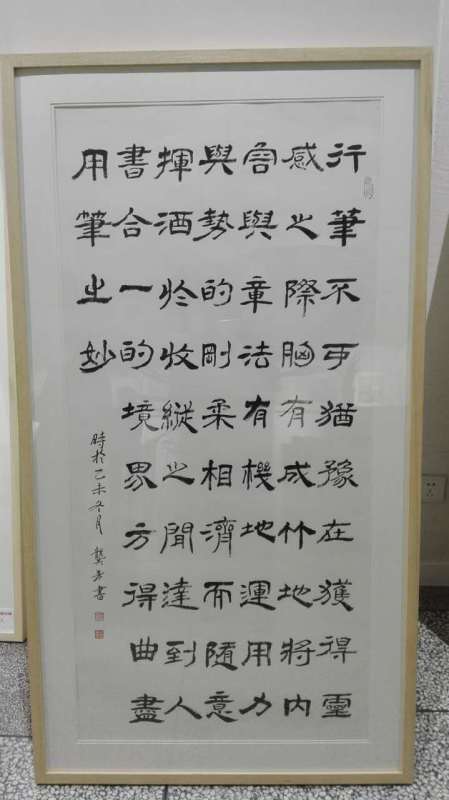 行筆不可猶豫在獲得靈
感之際胸有成竹地將內
容與章法有機地運用力
與勢的剛柔相濟而隨意
揮洒於收縱之間達到人
書合一的境界方得曲盡
用筆之妙
時於乙未冬月 龔方書